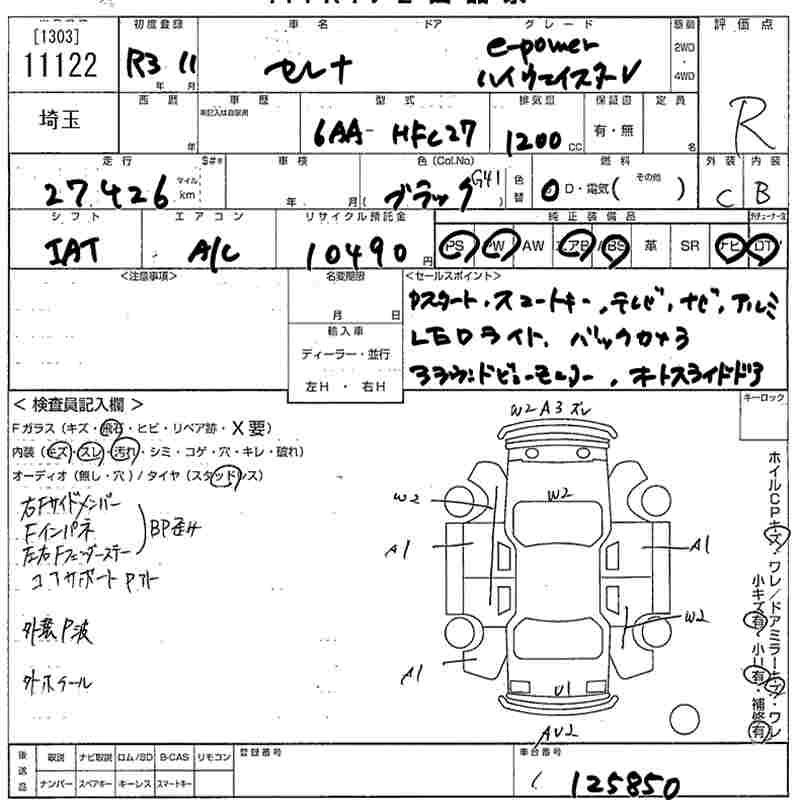 [1303]
11122
初度登録
R3 11
年 月
車名
セレナ
ドア
グレード
e-power
ハイウェイスターV
2WD
・
4WD
評価点
R
埼玉
西暦
年
車歴
型式
6AA- HFC27
排気量
1200 CC
保証書
有・無
定員
名
外装
C
内装
B
走行
27,426
マイル
km
S#*
車検
年 月
色(Col.No)
ブラック G41
色替
燃料
O D・電気( その他 )
シフト
IAT
エアコン
A/C
リサイクル預託金
10490 円
純正装備品
PS PW AW エアB ABS 革 SR ナビ DTV
<注意事項>
名変期限
月 日
輸入車
ディーラー・並行
左H ・ 右H
<セールスポイント>
Pスタート、スマートキー、テレビ、ナビ、アルミ
LEDライト、バックカメラ
アラウンドビューモニター、オートスライドドア
< 検査員記入欄 >
Fガラス(キズ・飛石・ヒビ・リペア跡・X要)
内装(キズ・スレ・汚れ・シミ・コゲ・穴・キレ・破れ)
オーディオ(無し・穴)/タイヤ(スタッドレス)
右Fサイドメンバー
Fインパネ
左右Fフェンダーステー
BP歪み
コアサポートPアト
外装P波
外ホイール
キーロック
W2 A3 ズレ
W2
W2
A1
A1
W2
A1
U1
AU2
ホイルCPキズ・ワレ/ドアミラーキズ・ワレ
小キズ有・小U有・補修有
後送品
取説 ナビ取説 ロム/SD B-CAS リモコン
ナンバー スペアキー キーレス スマートキー
登録番号
車台番号
125850